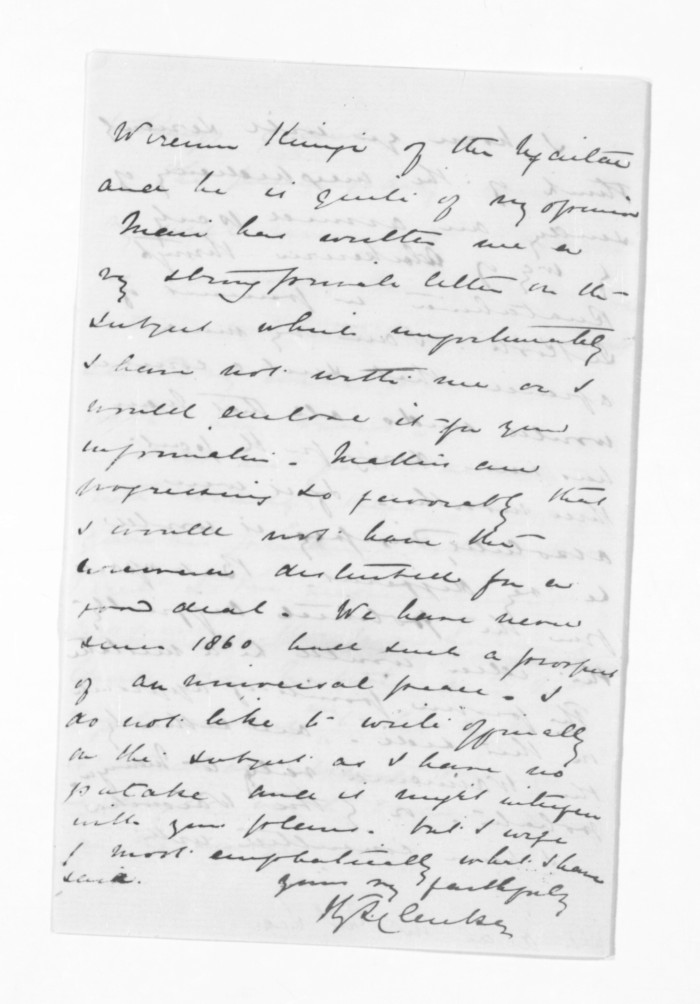 Wiremu Kingi of the Ngaitai
and he is quite of my opinion
Mair has written me a
vy strong private letter on the
subject which unfortunately
I have not with me or I
would enclose it for your
information. Matters are
progressing so favorably that
I would not have the
disturbed for a
good deal. We have never
since 1860 had such a prospect
of an universal peace. I
do not like to write officially
on the subject as I have no
and it might interfere
with your plans. but I
I most emphatically what I have
said.
yours vy faithfully
Clarke